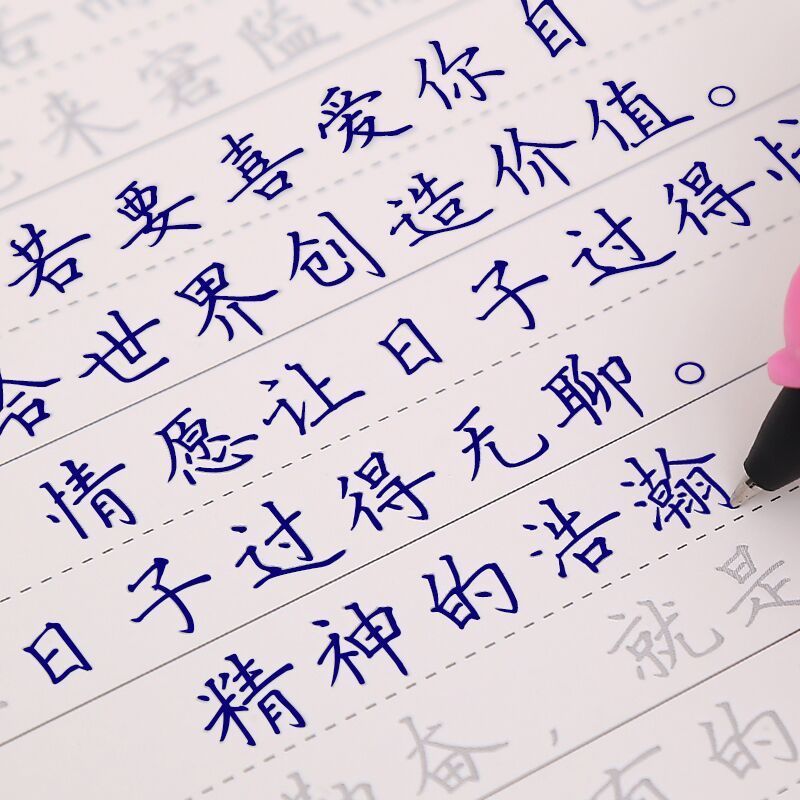 来窘隘
若要喜爱你自
给世界创造价值。
情愿让日子过得忙
日子过得无聊。
精神的浩瀚
就是
勤奋，有的